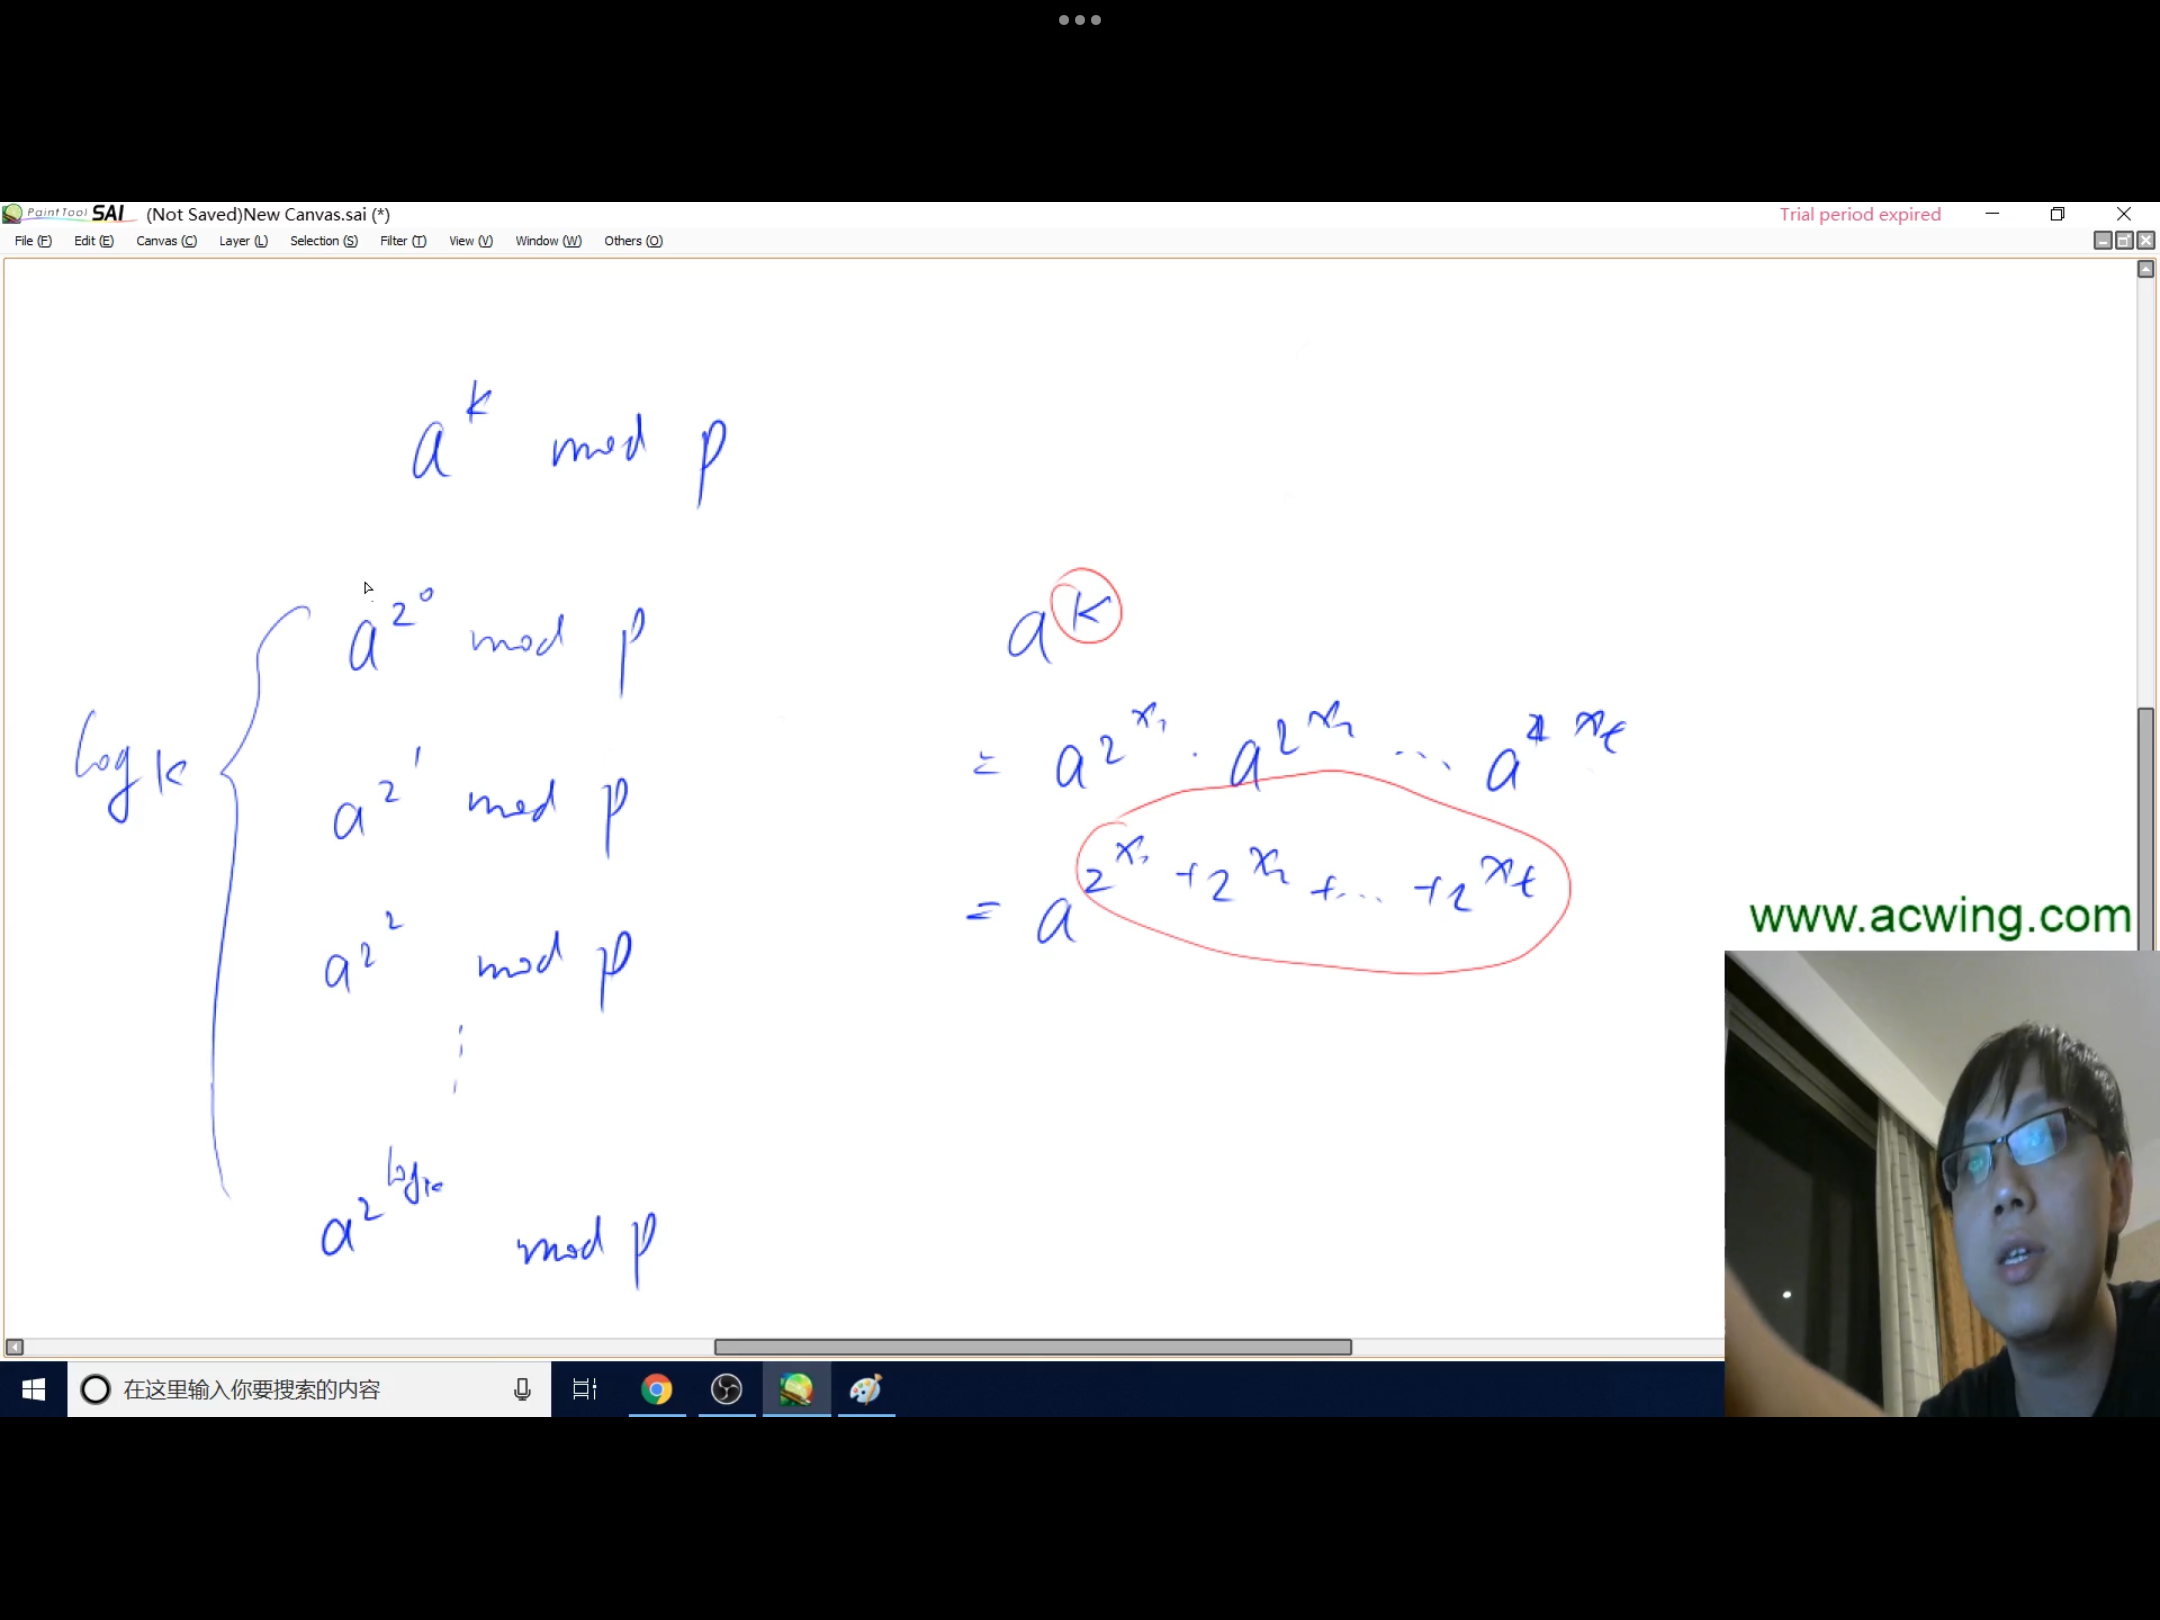 PaintTool SAI (Not Saved)New Canvas.sai (*) Trial period expired
File (F) Edit (E) Canvas (C) Layer (L) Selection (S) Filter (T) View (V) Window (W) Others (O)
a^k mod p
a^{2^0} mod p
a^{2^1} mod p
a^{2^2} mod p
⋮
a^{2^{log k}} mod p
log k
a^k
= a^{2^{x_1}} · a^{2^{x_2}} ... a^{2^{x_t}}
= a^{2^{x_1} + 2^{x_2} + ... + 2^{x_t}}
www.acwing.com
在这里输入你要搜索的内容